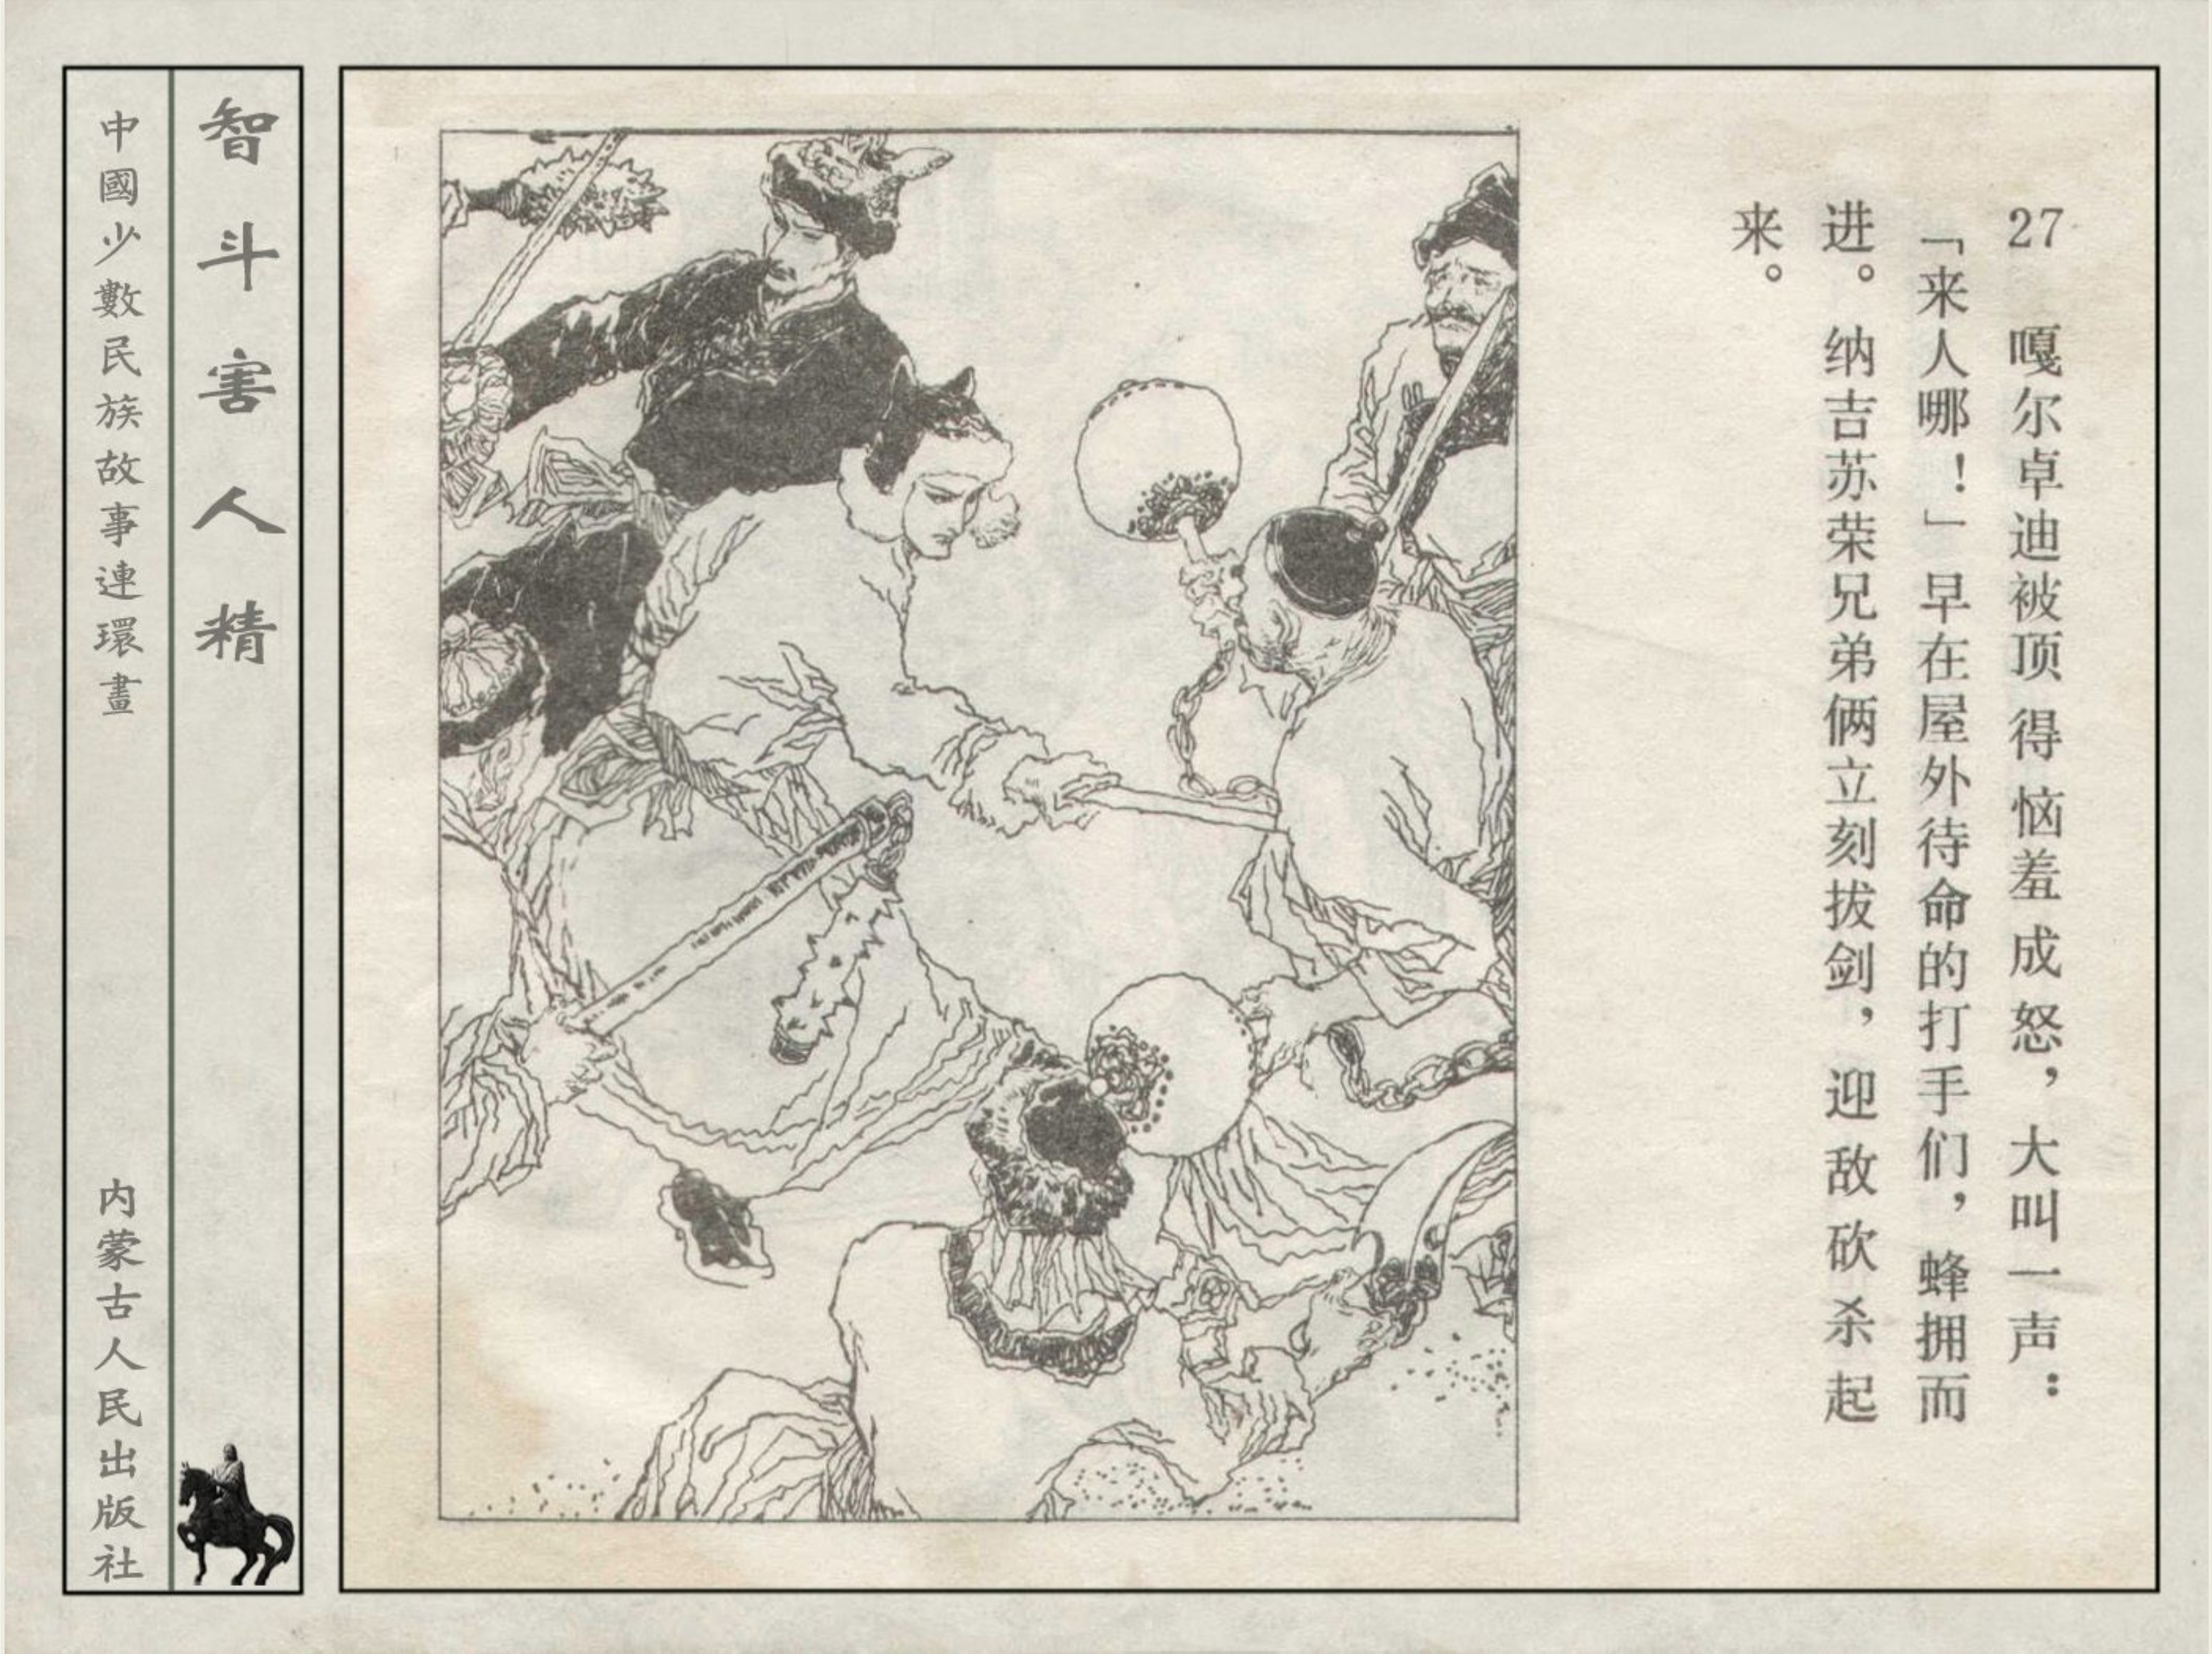 27 嘎尔卓迪被顶得恼羞成怒，大叫一声：
「来人哪！」早在屋外待命的打手们，蜂拥而
进。纳吉苏荣兄弟俩立刻拔剑，迎敌砍杀起
来。
智斗害人精
中國少數民族故事連環畫
内蒙古人民出版社